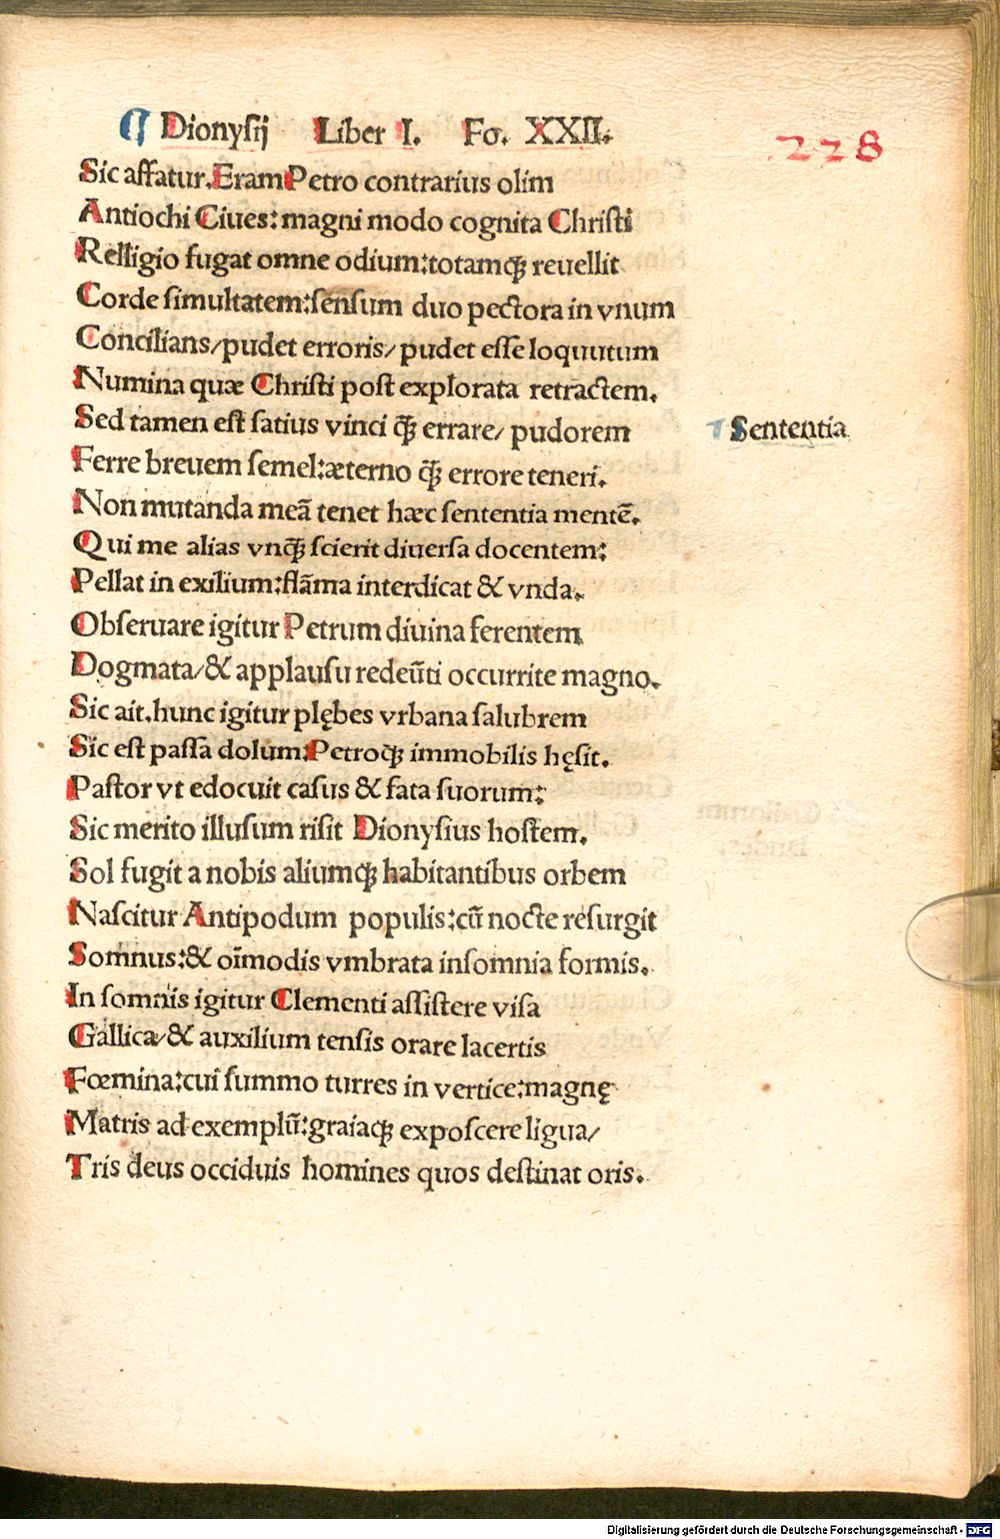 ¶ Dionysij Liber I. Fo. XXII.
228
Sic affatur. Eram Petro contrarius olim
Antiochi Ciues: magni modo cognita Christi
Relligio fugat omne odium: totamq́ꝫ reuellit
Corde simultatem: sensum duo pectora in vnum
Concilians/ pudet erroris/ pudet esse loquutum
Numina quæ Christi post explorata retractem.
Sed tamen est satius vinci q̃ꝫ errare/ pudorem
¶ Sententia
Ferre breuem semel: æterno q̃ꝫ errore teneri.
Non mutanda meã tenet hæc sententia mentẽ.
Qui me alias vnq̃ꝫ scierit diuersa docentem:
Pellat in exilium: flãma interdicat & vnda.
Obseruare igitur Petrum diuina ferentem
Dogmata/ & applausu redeũti occurrite magno.
Sic ait. hunc igitur plębes vrbana salubrem
Sic est passa dolum: Petroq́ꝫ immobilis hęsit.
Pastor vt edocuit casus & fata suorum:
Sic merito illusum risit Dionysius hostem.
Sol fugit a nobis aliumq́ꝫ habitantibus orbem
Nascitur Antipodum populis: cũ nocte resurgit
Somnus: & oĩmodis vmbrata insomnia formis.
In somnis igitur Clementi assistere visa
Gallica/ & auxilium tensis orare lacertis
Fœmina: cui summo turres in vertice: magnę
Matris ad exemplũ: graiaq́ꝫ exposcere ligua/
Tris deus occiduis homines quos destinat oris.
Digitalisierung gefördert durch die Deutsche Forschungsgemeinschaft - DFG